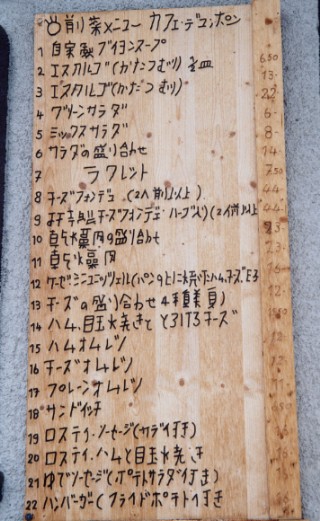 削菜メニュー カフェ・デュ・ポン
1 自家製ブイヨンスープ
2 エスカルゴ(かたつむり) 2皿 6.50
3 エスカルゴ(かたつむり) 13.-
4 グリーンサラダ 6.-
5 ミックスサラダ 8.-
6 サラダの盛り合わせ 14.-
7 ラクレット
8 チーズフォンデュ (2人前以上) 44.-
9 チーズフォンデュ ハーブ入り(2人前以上)
10 乾燥肉の盛り合わせ
11 乾燥肉
12 ケーゼシュニッツェル(パンの上に焼いたハム、チーズ
13 チーズの盛り合わせ 4種類
14 ハム、目玉焼きととろけるチーズ
15 ハムオムレツ
16 チーズオムレツ
17 プレーンオムレツ
18 サンドイッチ
19 ロスティ・ソーセージ(サラダ付き)
20 ロスティ、ハムと目玉焼き
21 ゆでソーセージ(ポテトサラダ付き)
22 ハンバーガー(フライドポテト付き